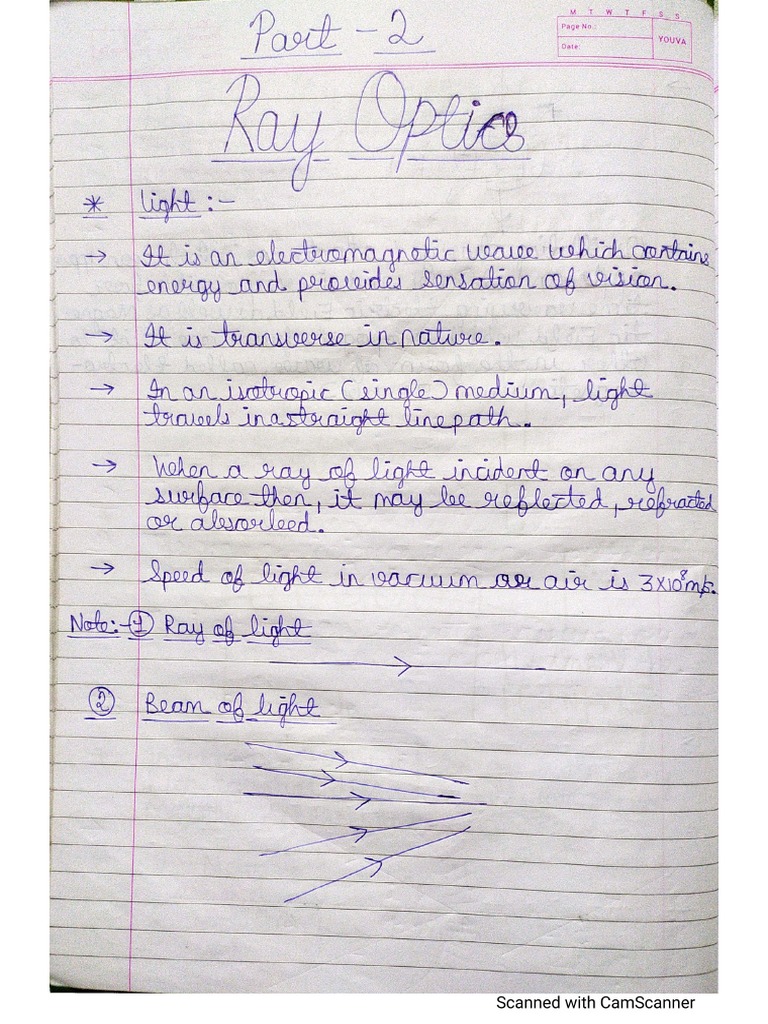 Part - 2
M T W T F S S
Page No.:
Date:
YOUVA
Ray Optics
* light :-
→ It is an electromagnetic wave which contains
energy and provides sensation of vision.
→ It is transverse in nature.
→ In an isotropic (single) medium, light
travels in a straight line path.
→ When a ray of light incident on any
surface then, it may be reflected, refracted
or absorbed.
→ Speed of light in vacuum or air is 3×10⁸m/s.
Note:- ① Ray of light
② Beam of light
Scanned with CamScanner